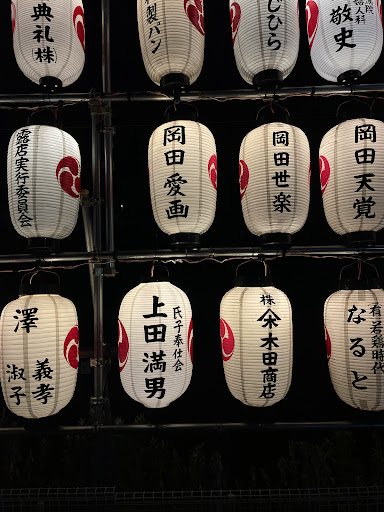 典礼
(株)
製パン
じひら
婦人科
敬史
露店実行委員会
岡田愛画
岡田世楽
岡田天覚
澤
義孝
淑子
氏子奉仕会
上田満男
株
木田商店
若鶏時代
なると